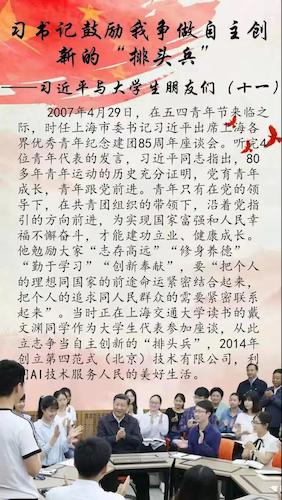 习书记鼓励我争做自主创
新的“排头兵”
——习近平与大学生朋友们（十一）
2007年4月29日，在五四青年节来临之
际，时任上海市委书记习近平出席上海各
界优秀青年纪念建团85周年座谈会。听完4
位青年代表的发言，习近平同志指出，80
多年青年运动的历史充分证明，党育青年
成长，青年跟党前进。青年只有在党的领
导下，在共青团组织的带领下，沿着党指
引的方向前进，为实现国家富强和人民幸
福不懈奋斗，才能建功立业、健康成长。
他勉励大家“志存高远”“修身养德”
“勤于学习”“创新奉献”，要“把个人
的理想同国家的前途命运紧密结合起来，
把个人的追求同人民群众的需要紧密联系
起来”。当时正在上海交通大学读书的戴
文渊同学作为大学生代表参加座谈，从此
立志争当自主创新的“排头兵”，2014年
创立第四范式（北京）技术有限公司，利
用AI技术服务人民的美好生活。